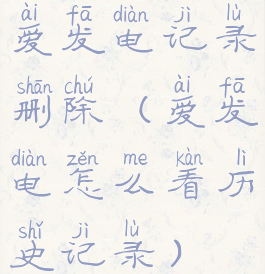 ài fā diàn jì lù
爱发电记录
shān chú ài fā
删除（爱发
diàn zěn me kàn lì
电怎么看历
shǐ jì lù
史记录）